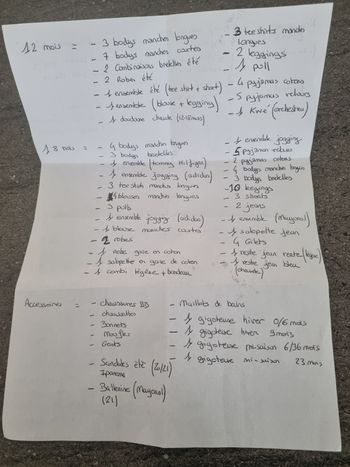 12 mois = - 3 bodys manches longues
- 7 bodys manches courtes
- 2 Combinaisons bretelles été
- 2 Robes été
- 1 ensemble été (tee shirt + short)
- 1 ensemble (blouse + legging)
- 1 doudoune chaude
- 3 tee shirts manches longues
- 2 leggings
- 1 pull
- 4 pyjamas cotons
- 5 pyjamas velours
- 1 Kwé (orchestra)
18 mois = - 4 bodys manches longues
- 3 bodys bretelles
- 1 ensemble (Tommy Hilfiger)
- 1 ensemble jogging (adidas)
- 3 tee shirts manches longues
- 4 blouses manches longues
- 3 pulls
- 1 ensemble jogging (adidas)
- 1 blouse manches courtes
- 2 robes
- 1 robe gaze en coton
- 1 salopette en gaze de coton
- 1 combi légère + bandeau
- 1 ensemble jogging
- 5 pyjamas velours
- 2 pyjamas cotons
- 4 bodys manches longues
- 3 bodys bretelles
- 10 leggings
- 3 shorts
- 2 jeans
- 1 ensemble (Mayoral)
- 1 salopette jean
- 4 Gilets
- 1 veste jean
- 1 veste jean bleu (chaude)
Accessoires = - chaussures BB
- chaussettes
- Bonnets
- Moufles
- Gants
- Sandales été (20/21) Ipanema
- Ballerine (Mayoral) (21)
- Maillots de bains
- 1 gigoteuse hiver 0/6 mois
- 1 gigoteuse hiver 9 mois
- 1 gigoteuse mi-saison 6/36 mois
- 1 gigoteuse mi-saison 23 mois